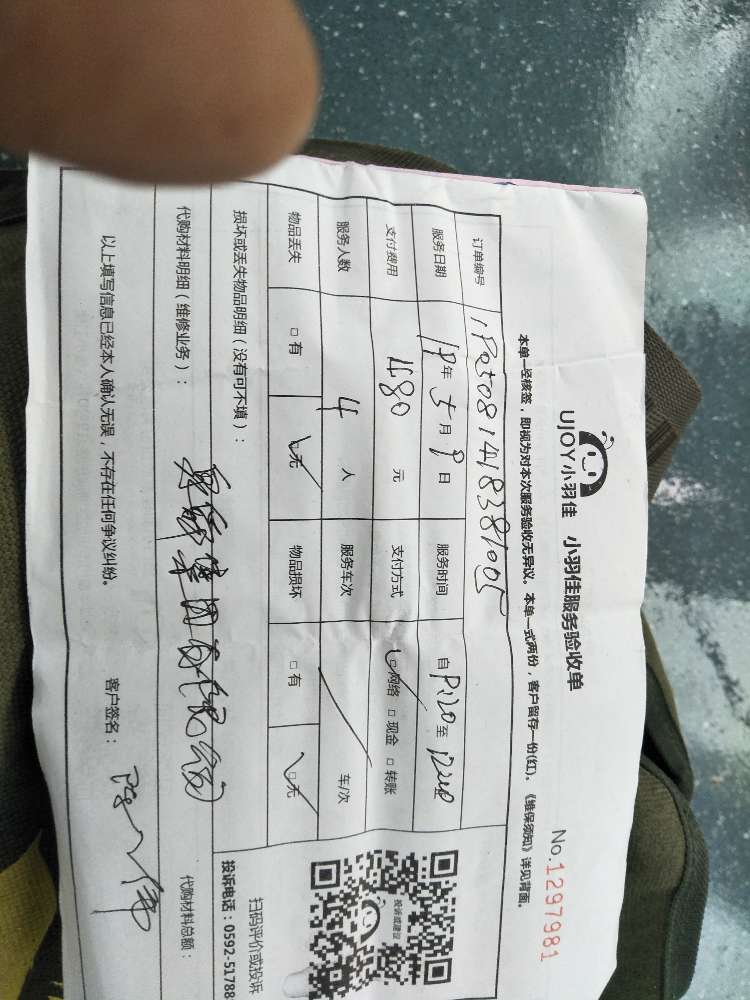 UJOY小羽佳 小羽佳服务验收单
No.1297981
本单一经核签,即视为对本次服务验收无异议。本单一式两份,客户留存一份(红)。《维保须知》详见背面。
订单编号
服务日期 19年5月9日 服务时间 自 至
支付费用 480元 支付方式 网络 □现金 □转账
服务人数 4人 服务车次 车/次
物品丢失 □有 □无 物品损坏 □有 □无
损坏或丢失物品明细(没有可不填):
代购材料明细(维修业务): 代购材料总额:
以上填写信息已经本人确认无误,不存在任何争议纠纷。 客户签名:
投诉或建议
扫码评价或投诉
投诉电话:0592-51788